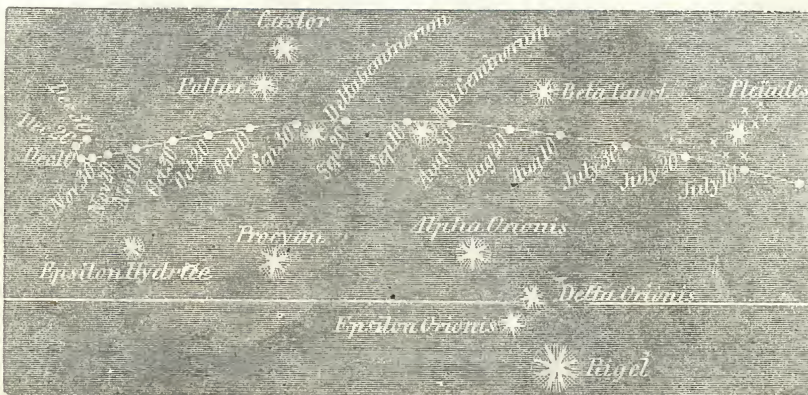 Castor
Pollux
Delta Geminorum
Mu Geminorum
Beta Tauri
Pleiades
Dec. 30
Dec. 20
Dec. 10
Nov. 30
Nov. 20
Nov. 10
Oct. 30
Oct. 20
Oct. 10
Sep. 30
Sep. 20
Sep. 10
Aug. 30
Aug. 20
Aug. 10
July 30
July 20
July 10
Epsilon Hydræ
Procyon
Alpha Orionis
Delta Orionis
Epsilon Orionis
Rigel